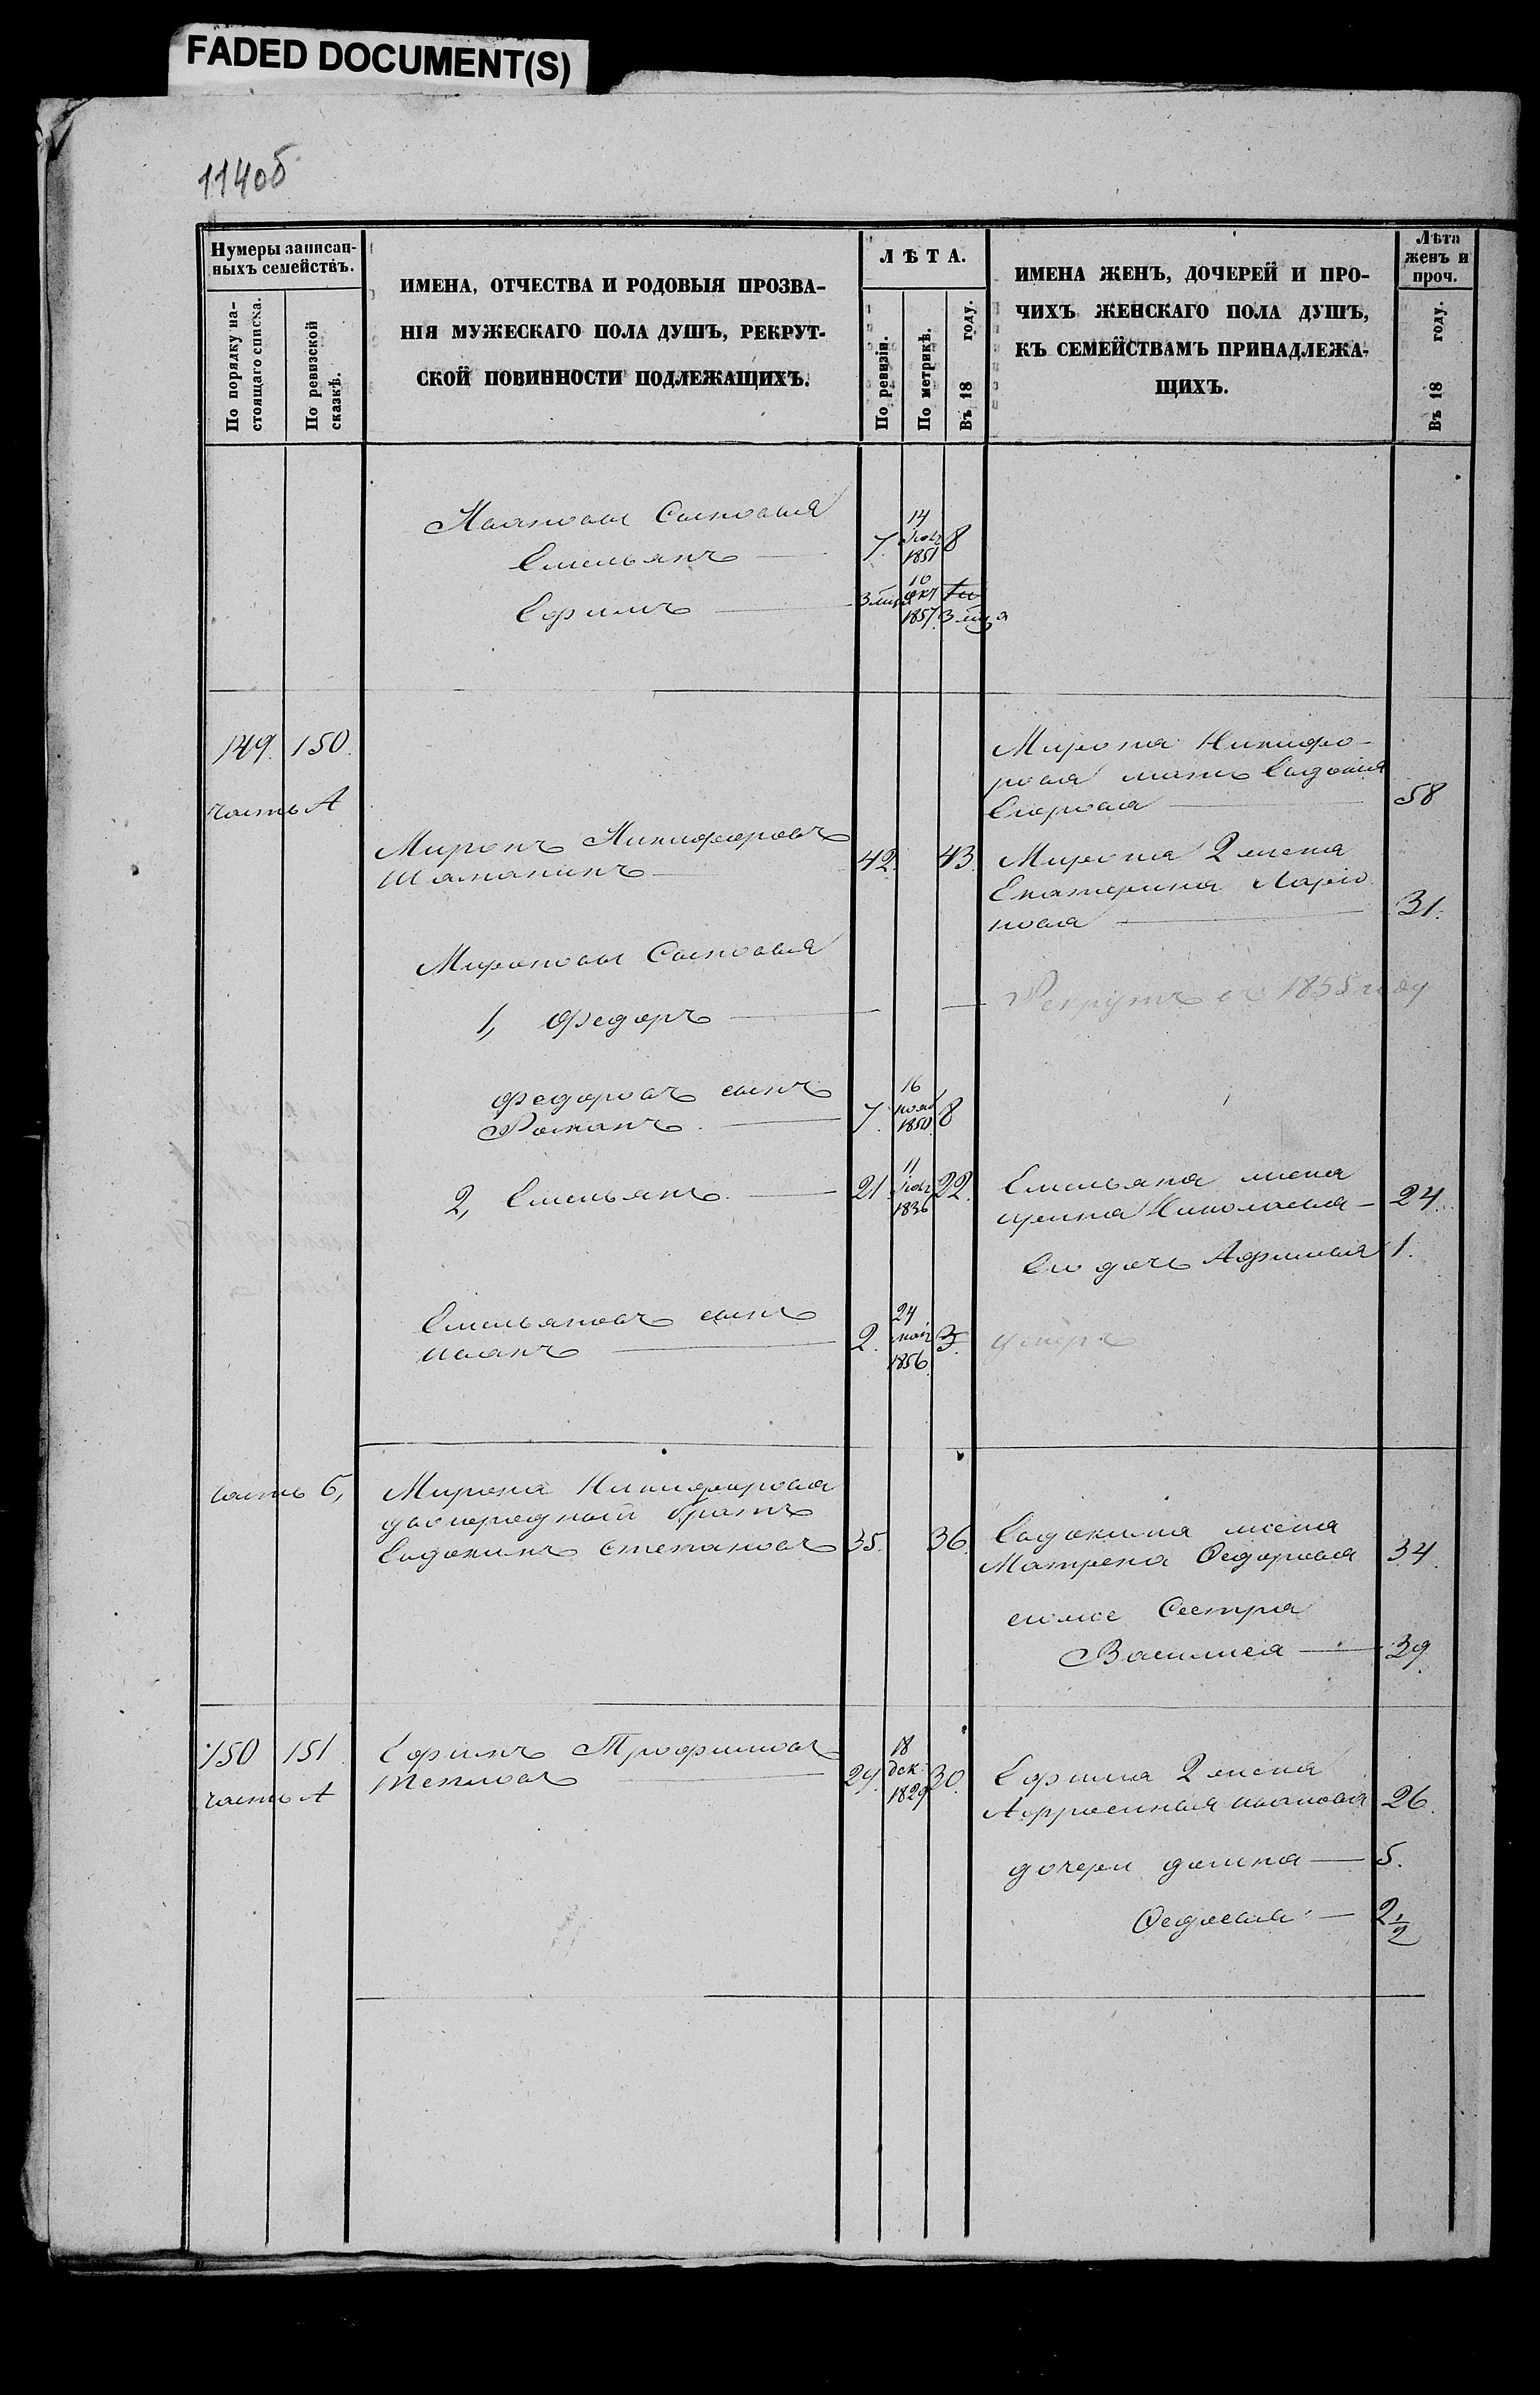 FADED DOCUMENT(S)
114об
Нумеры записан-
ныхъ семействъ.
По порядку на-
стоящаго списка.
По ревизской
сказкѣ.
ИМЕНА, ОТЧЕСТВА И РОДОВЫЯ ПРОЗВА-
НІЯ МУЖЕСКАГО ПОЛА ДУШЪ, РЕКРУТ-
СКОЙ ПОВИННОСТИ ПОДЛЕЖАЩИХЪ.
ЛѢТА.
По ревизіи.
По метрикѣ.
Въ 18 году.
ИМЕНА ЖЕНЪ, ДОЧЕРЕЙ И ПРО-
ЧИХЪ ЖЕНСКАГО ПОЛА ДУШЪ,
КЪ СЕМЕЙСТВАМЪ ПРИНАДЛЕЖА-
ЩИХЪ.
Лѣта
женъ и
проч.
Въ 18 году.
Ивановы Сыновья
Емельянъ — 7. 14 1851 8
Ефимъ — 3 мца 10 окт 1857. 3 мца
149. 150.
часть А
Мирона Никифо-
рова мать Евдокія
Егорова — 58
Миронъ Никифоровъ
Шаманинъ — 42. 43.
Мирона 2 жена
Екатерина Ларіо
нова — 31.
Мироновы Сыновья
1, Федоръ —
— Рекрутъ съ 1855 году
Федоровъ сынъ
Романъ. — 7. 16 нояб 1850. 8
2, Емельянъ. — 21 11 1836 22.
Емельяна жена
Ирина Николаева — 24.
Его дочь Афимья 1.
Емельяновъ сынъ
Иванъ — 2. 24 1856. 3.
умеръ
часть Б,
Мирона Никифорова
двоюродный братъ
Евдокимъ Степановъ 35. 36.
Евдокима жена
Матрена Федорова 34.
его же Сестра
Василиса — 39.
150 151.
часть А
Ефимъ Трофимовъ
Тепловъ — 29. 18 дек. 1829 30.
Ефима 2 жена
Афросинья Иванова 26.
дочери домна — 5.
Федосья — 2 1/2